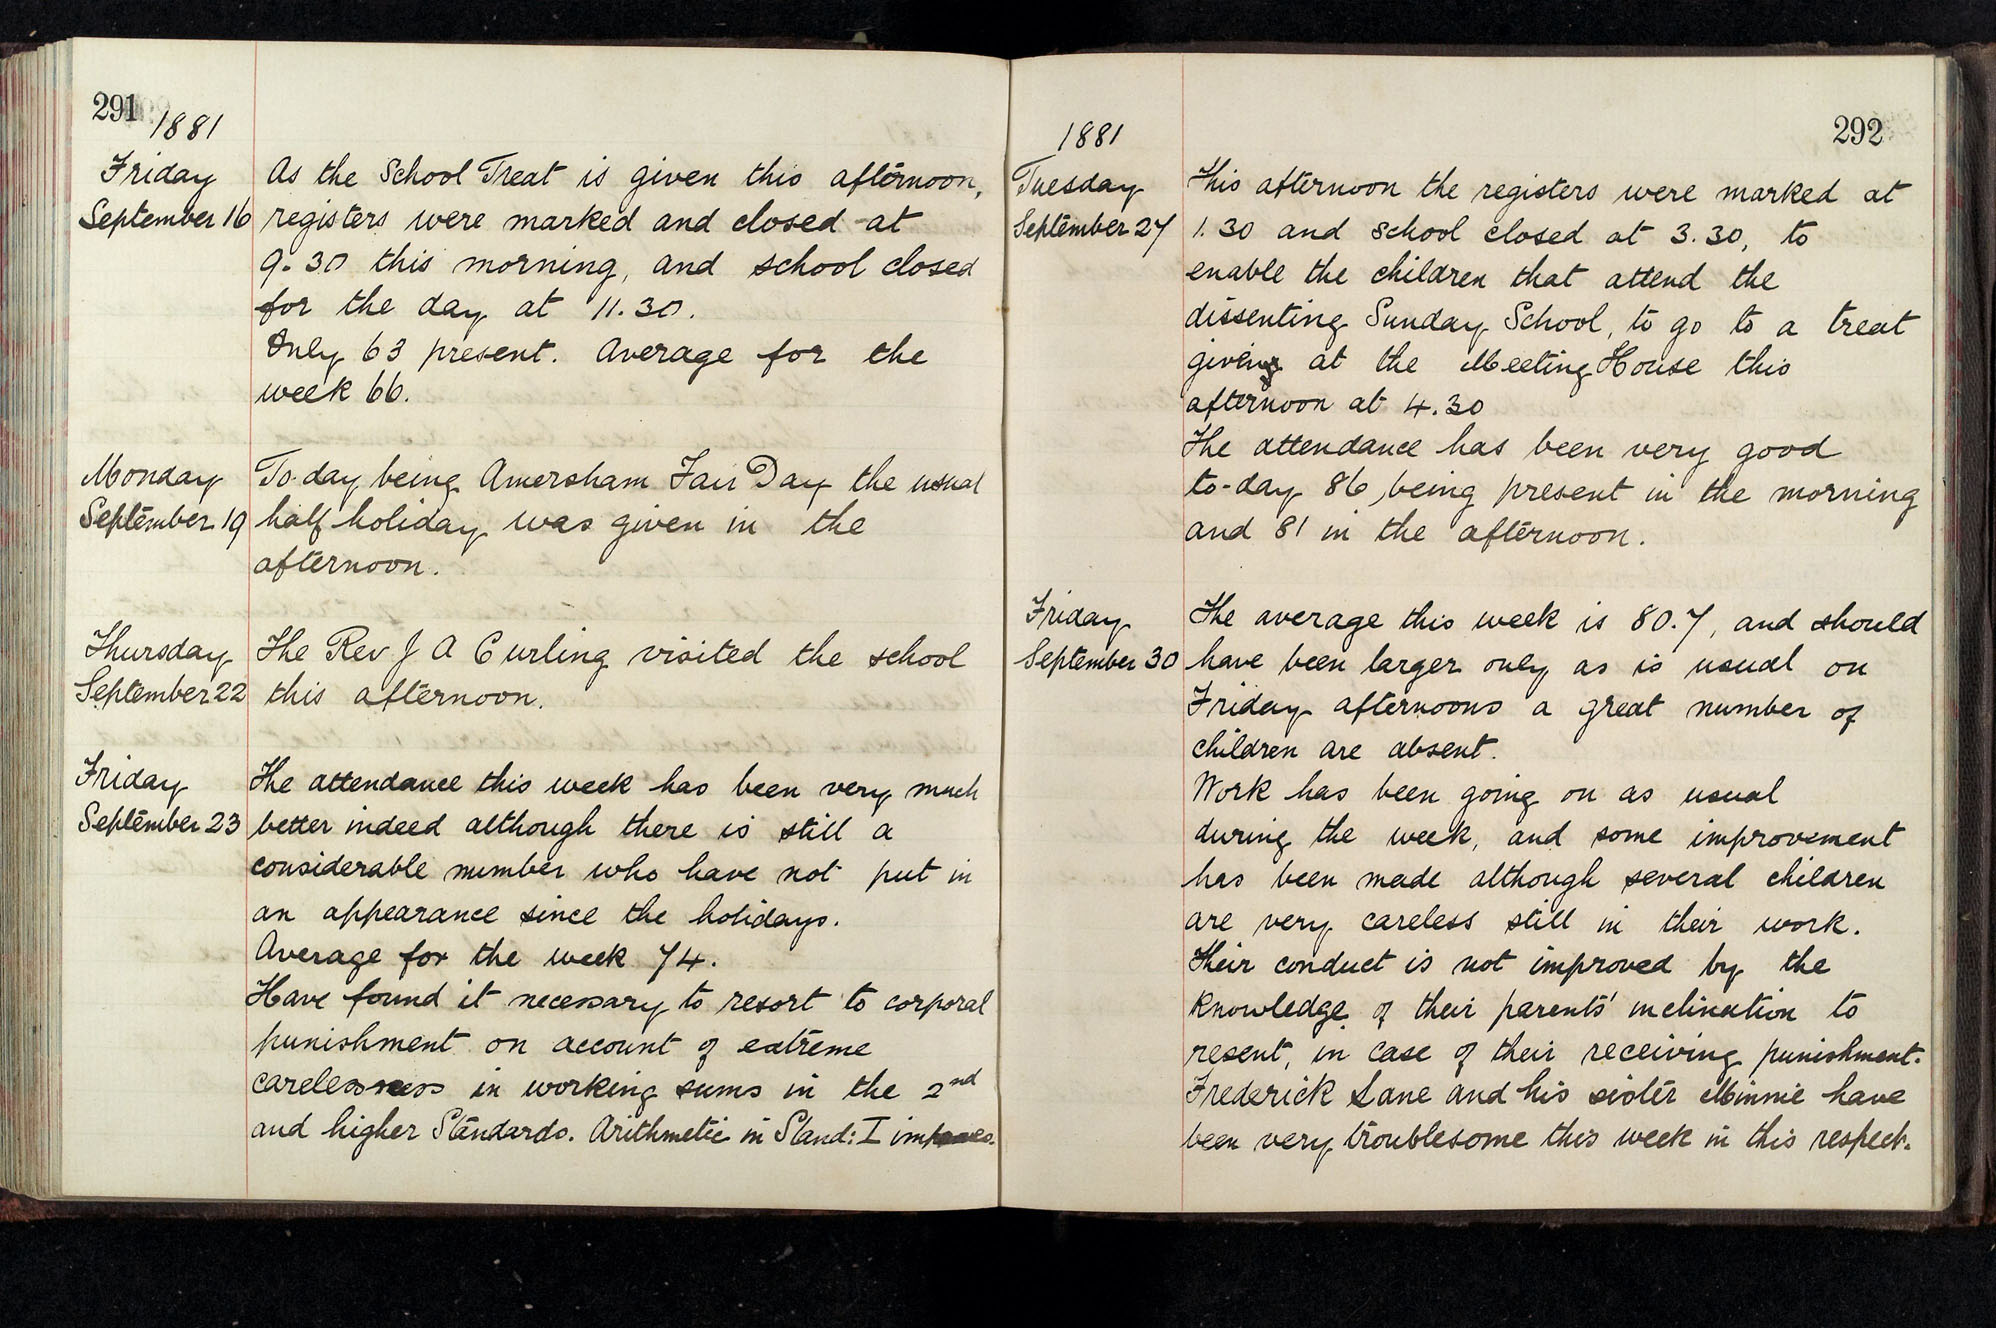 291
1881
Friday
September 16
As the School Treat is given this afternoon,
registers were marked and closed at
9.30 this morning, and school closed
for the day at 11.30.
Only 63 present. Average for the
week 66.
Monday
September 19
To-day being Amersham Fair Day the usual
half holiday was given in the
afternoon.
Thursday
September 22
The Rev J A Curling visited the school
this afternoon.
Friday
September 23
The attendance this week has been very much
better indeed although there is still a
considerable number who have not put in
an appearance since the holidays.
Average for the week 74.
Have found it necessary to resort to corporal
punishment on account of extreme
carelessness in working sums in the 2nd
and higher Standards. Arithmetic in Stand: I
292
1881
Tuesday
September 27
This afternoon the registers were marked at
1.30 and school closed at 3.30, to
enable the children that attend the
dissenting Sunday School, to go to a treat
giving at the Meeting House this
afternoon at 4.30
The attendance has been very good
to-day 86, being present in the morning
and 81 in the afternoon.
Friday
September 30
The average this week is 80.7, and should
have been larger only as is usual on
Friday afternoons a great number of
children are absent.
Work has been going on as usual
during the week, and some improvement
has been made although several children
are very careless still in their work.
Their conduct is not improved by the
knowledge of their parents' inclination to
resent, in case of their receiving punishment.
Frederick Lane and his sister Minnie have
been very troublesome this week in this respect.